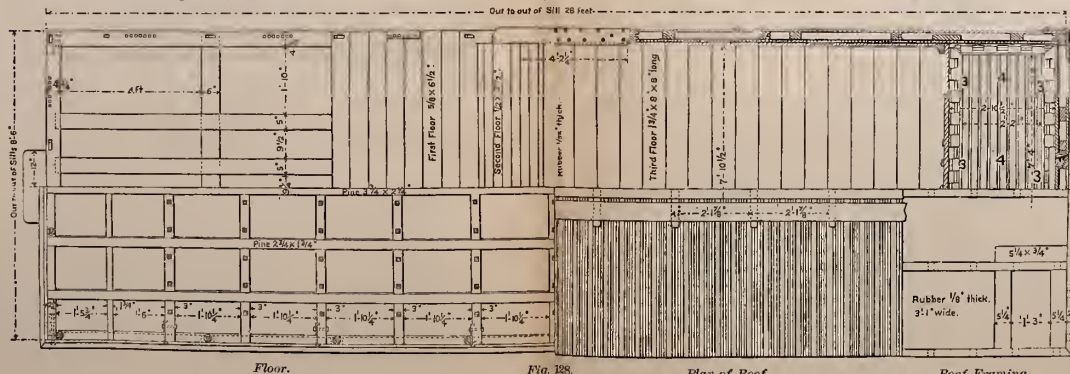 Out to out of Sill 28 feet.
Out to out of Sills 8'-6"
4 ft
6"
4"
1'-10"
5"
9 1/2"
12"
First Floor 5/8 X 6 1/2"
Second Floor 1/2 X
4'-2 1/4"
Rubber thick.
Third Floor 1 3/4" X 8" X 8" long
7'-10 1/2"
3
4
3
3
4
3
Pine 3 1/4 X 2 1/4"
Pine 2 3/4 X 1 3/4"
2'-1 7/8"
2'-1 7/8"
5 1/4 X 3/4"
Rubber 1/8" thick.
3'-1" wide.
5 1/4"
1'-3"
5 1/4"
1'-5 3/4"
1 3/4"
1'-6"
3"
1'-10 1/4"
3"
1'-10 1/4"
3"
1'-10 1/4"
3"
1'-10 1/4"
3"
1'-10 1/4"
Floor.
Fig. 128.
Plan of Roof.
Roof Framing.